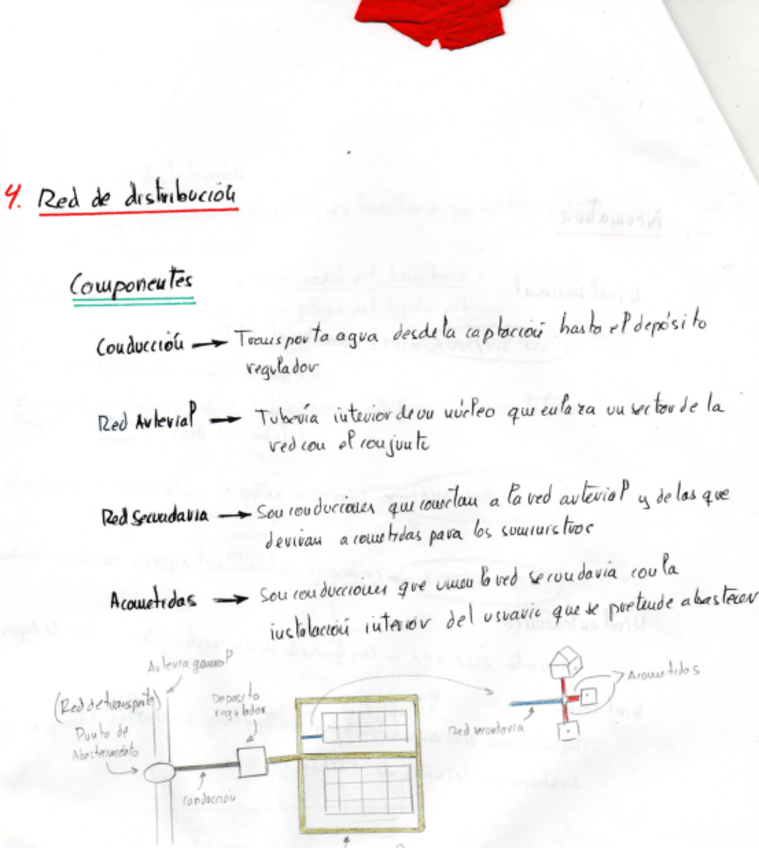 4. Red de distribución
Componentes
Conducción → Transporta agua desde la captación hasta el depósito
regulador
Red Arterial → Tubería interior de un núcleo que enlaza un sector de la
red con el conjunto
Red Secundaria → Son conducciones que conectan a la red arterial y de las que
derivan acometidas para los suministros
Acometidas → Son conducciones que unen la red secundaria con la
instalación interior del usuario que se pretende abastecer
Arteria general
(Red de transporte)
Punto de
Abastecimiento
Conducción
Deposito
regulador
Red secundaria
Acometidas